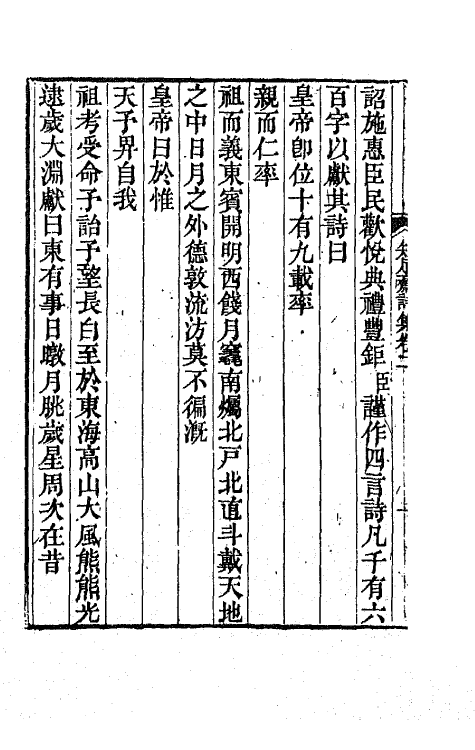 詔施惠臣民歡悅典禮豐鉅臣謹作四言詩凡千有六
百字以獻其詩曰
皇帝卽位十有九載率
親而仁率
祖而義東賓開明西餞月竁南爥北戸北直斗戴天地
之中日月之外德敦流汸莫不徧漑
皇帝曰於惟
天予畀自我
祖考受命予詒予堥長白至於東海高山大風熊熊光
逮歲大淵獻曰東有事日暾月朓歲星周次在昔
知足齋詩集卷二